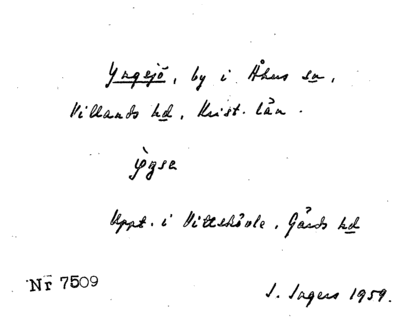 Yngsjö, by i Åhus sn,
Villands hd, Krist. län.
Uppt. i Vittskövle, Gärds hd
Nr 7509
I. Ingers 1959.